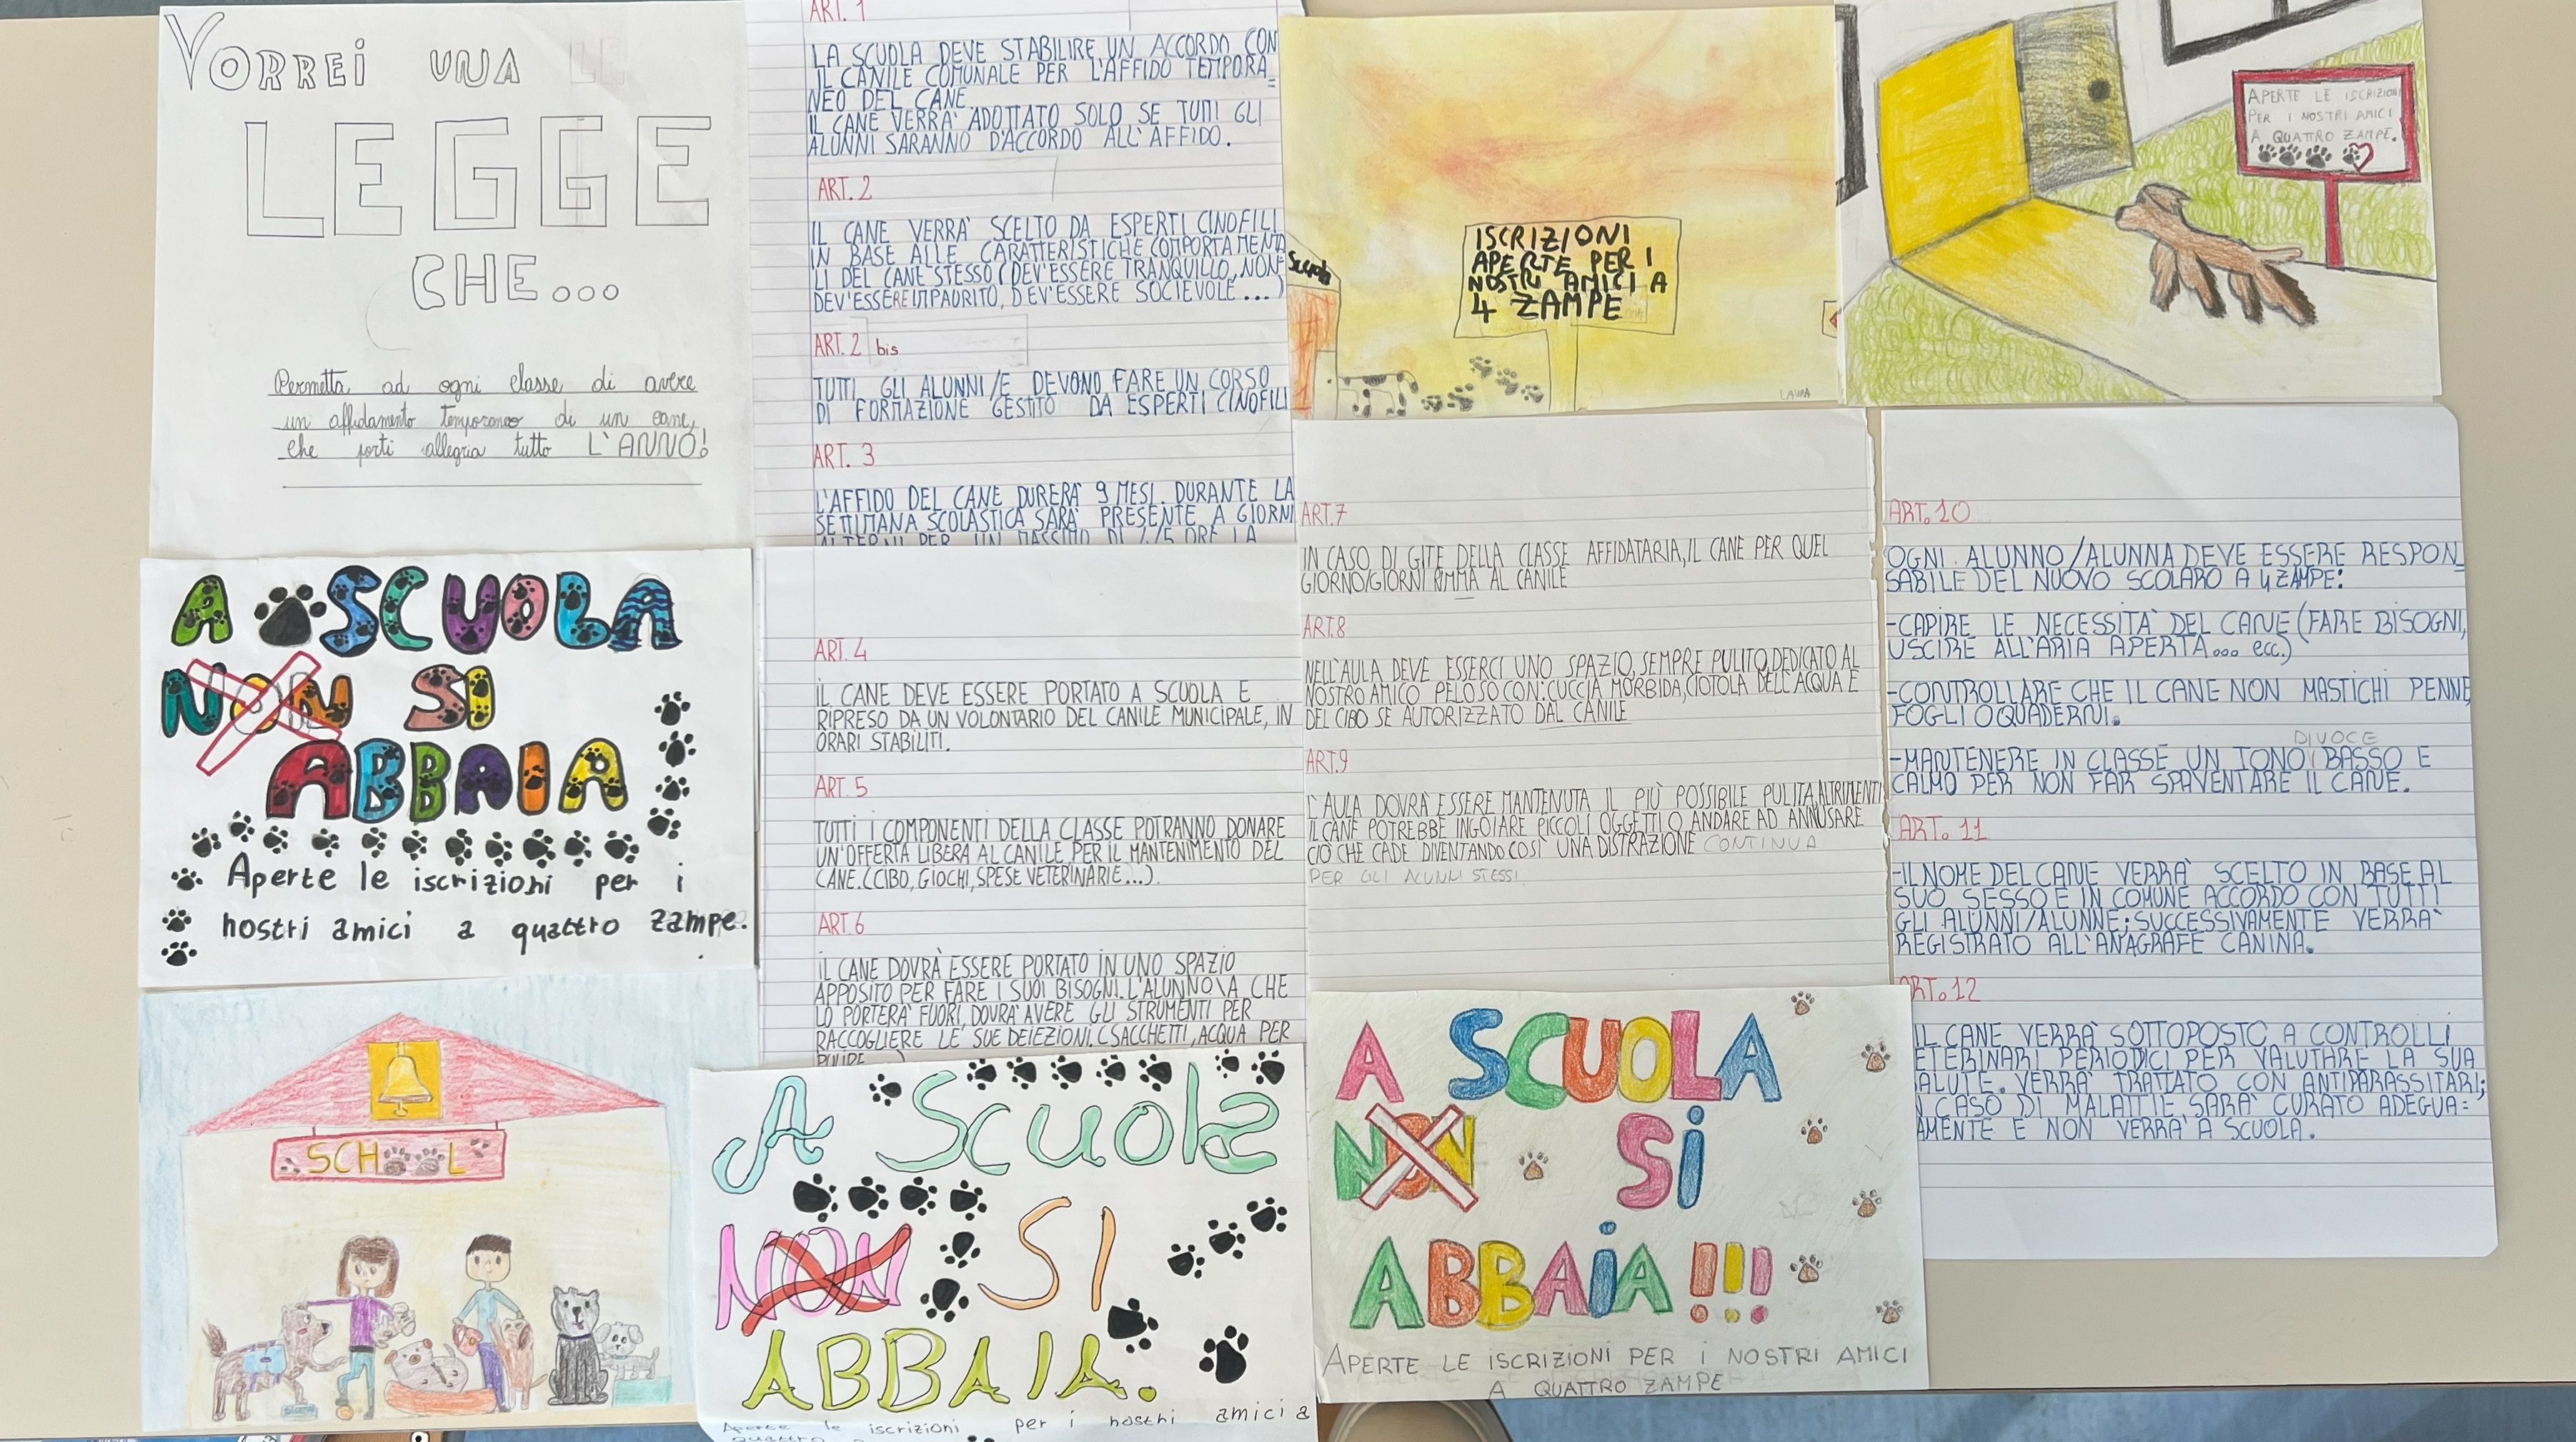 VORREI UNA
LEGGE
CHE...
Permetta ad ogni classe di avere
un affidamento temporaneo di un cane,
che porti allegria tutto L'ANNO!
ART. 1
LA SCUOLA DEVE STABILIRE UN ACCORDO CON
IL CANILE COMUNALE PER L'AFFIDO TEMPORA=
NEO DEL CANE.
IL CANE VERRA' ADOTTATO SOLO SE TUTTI GLI
ALUNNI SARANNO D'ACCORDO ALL'AFFIDO.
ART. 2
IL CANE VERRA' SCELTO DA ESPERTI CINOFILI
IN BASE ALLE CARATTERISTICHE COMPORTAMENTA
LI DEL CANE STESSO (DEV'ESSERE TRANQUILLO, NON
DEV'ESSERE IMPAURITO, DEV'ESSERE SOCIEVOLE...)
ART. 2 bis
TUTTI GLI ALUNNI/E DEVONO FARE UN CORSO
DI FORMAZIONE GESTITO DA ESPERTI CINOFILI
ART. 3
L'AFFIDO DEL CANE DURERA' 9 MESI. DURANTE LA
SETTIMANA SCOLASTICA SARA' PRESENTE A GIORNI
ALTERNI PER UN MASSIMO DI 4/5 ORE LA
Scuola
ISCRIZIONI
APERTE PER I
NOSTRI AMICI A
4 ZAMPE
LAURA
APERTE LE ISCRIZIONI
PER I NOSTRI AMICI
A QUATTRO ZAMPE.
A SCUOLA
NON SI
ABBAIA
Aperte le iscrizioni per i
nostri amici a quattro zampe.
ART. 4
IL CANE DEVE ESSERE PORTATO A SCUOLA E
RIPRESO DA UN VOLONTARIO DEL CANILE MUNICIPALE, IN
ORARI STABILITI.
ART. 5
TUTTI I COMPONENTI DELLA CLASSE POTRANNO DONARE
UN'OFFERTA LIBERA AL CANILE PER IL MANTENIMENTO DEL
CANE.(CIBO, GIOCHI, SPESE VETERINARIE...).
ART. 6
IL CANE DOVRÀ ESSERE PORTATO IN UNO SPAZIO
APPOSITO PER FARE I SUOI BISOGNI. L'ALUNNO\A CHE
LO PORTERA' FUORI, DOVRA' AVERE GLI STRUMENTI PER
RACCOGLIERE LE SUE DEIEZIONI. (SACCHETTI, ACQUA PER
PULIRE...)
ART.7
IN CASO DI GITE DELLA CLASSE AFFIDATARIA, IL CANE PER QUEL
GIORNO/GIORNI RIMMA AL CANILE
ART.8
NELL'AULA DEVE ESSERCI UNO SPAZIO, SEMPRE PULITO, DEDICATO AL
NOSTRO AMICO PELOSO CON: CUCCIA MORBIDA, CIOTOLA DELL'ACQUA E
DEL CIBO SE AUTORIZZATO DAL CANILE
ART.9
L'AULA DOVRÀ ESSERE MANTENUTA IL PIÙ POSSIBILE PULITA ALTRIMENTI
IL CANE POTREBBE INGOIARE PICCOLI OGGETTI O ANDARE AD ANNUSARE
CIÒ CHE CADE DIVENTANDO COSÌ UNA DISTRAZIONE CONTINUA
PER GLI ALUNNI STESSI.
ART. 10
OGNI ALUNNO/ALUNNA DEVE ESSERE RESPON_
SABILE DEL NUOVO SCOLARO A 4 ZAMPE:
-CAPIRE LE NECESSITA' DEL CANE (FARE BISOGNI,
USCIRE ALL'ARIA APERTA... ecc.)
-CONTROLLARE CHE IL CANE NON MASTICHI PENNE
FOGLI O QUADERNI.
DI VOCE
-MANTENERE IN CLASSE UN TONO BASSO E
CALMO PER NON FAR SPAVENTARE IL CANE.
ART. 11
-IL NOME DEL CANE VERRA' SCELTO IN BASE AL
SUO SESSO E IN COMUNE ACCORDO CON TUTTI
GLI ALUNNI/ALUNNE; SUCCESSIVAMENTE VERRA'
REGISTRATO ALL'ANAGRAFE CANINA.
ART. 12
IL CANE VERRA' SOTTOPOSTO A CONTROLLI
ETERINARI PERIODICI PER VALUTARE LA SUA
ALUTE. VERRA' TRATTATO CON ANTIPARASSITARI;
N CASO DI MALATTIE SARA' CURATO ADEGUA=
AMENTE E NON VERRA' A SCUOLA.
SCHOOL
A Scuola
NON SI
ABBAIA.
Aperte le iscrizioni per i nostri amici a
quattro
A SCUOLA
NON SI
ABBAIA!!!
APERTE LE ISCRIZIONI PER I NOSTRI AMICI
A QUATTRO ZAMPE